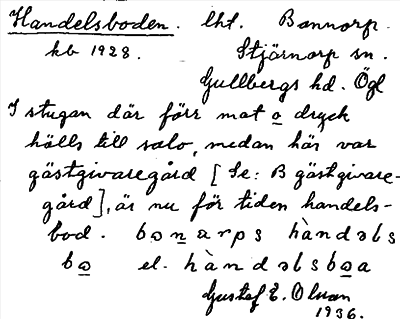 Handelsboden. lht. Bannorp.
kb 1928. Stjärnorp sn.
Gullbergs hd. Ögl
I stugan där förr mat o dryck
hölls till salo, medan här var
gästgivaregård [Se: B gästgivare-
gård], är nu för tiden handels-
bod. bɷnarps hàndəls
bɷ el. hàndəlsbɷa
Gustaf E. Olsson
1936.